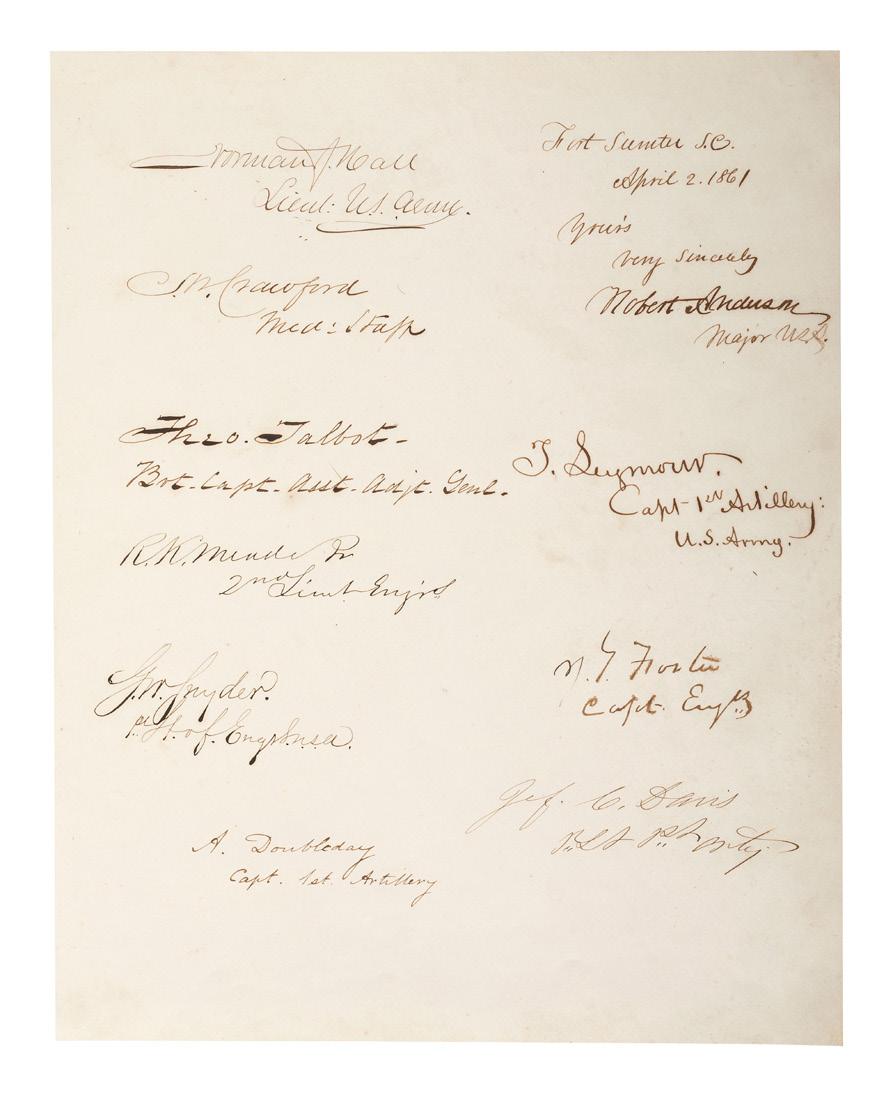 Norman J. Hall
Lieut: U.S. Army.
S.W. Crawford
Med: Staff
Theo. Talbot-
Bvt. Capt. Asst. Adjt. Genl.
R.K. Meade Jr
2nd Lieut Engrs
G.W. Snyder.
1st Lt. of Engrs U.S.A.
A. Doubleday
Capt. 1st. Artillery
Fort Sumter S.C.
April 2. 1861
Yours
very sincerely
Robert Anderson
Major U.S.A.
T. Seymour.
Capt 1st Artillery:
U.S. Army.
J. G. Foster
Capt. Engrs
Jef. C. Davis
1st Lt 1st Arty.